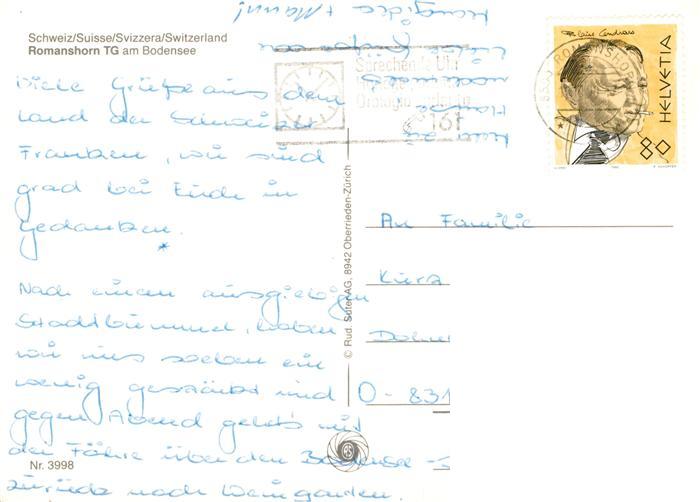 Schweiz/Suisse/Svizzera/Switzerland
Romanshorn TG am Bodensee
Viele Grüße aus dem
Land der Schweizer
Franken, wir sind
grad bei Euch in
Gedanken.
*
Nach einem ausgiebigen
Stadtbummel, haben
wir uns soeben ein
wenig gestärkt und
gegen Abend geht's mit
der Fähre über den Bodensee -
zurück nach Weingarten.
nach Hause
liebe
+ Mann!
Nr. 3998
© Rud. Suter AG, 8942 Oberrieden-Zürich
Sprechende Uhr
161
Blaise Cendrars
HELVETIA
80
An Familie
Kurz
O - 831